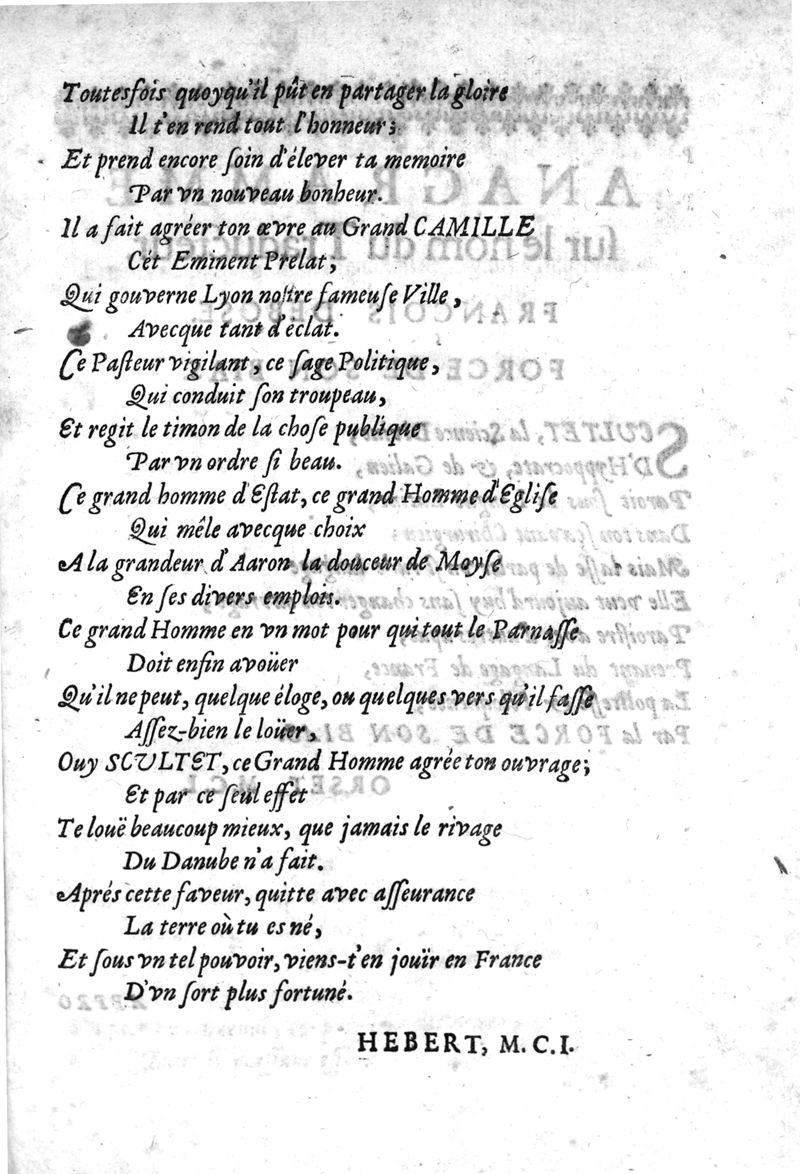 Toutesfois quoyqu'il pût en partager la gloire
Il t'en rend tout l'honneur;
Et prend encore ſoin d'élever ta memoire
Par vn nouveau bonheur.
Il a fait agréer ton œvre au Grand CAMILLE
Cét Eminent Prelat,
Qui gouverne Lyon noſtre fameuſe Ville,
Avecque tant d'éclat.
Ce Paſteur vigilant, ce ſage Politique,
Qui conduit ſon troupeau,
Et regit le timon de la choſe publique
Par vn ordre ſi beau.
Ce grand homme d'Eſtat, ce grand Homme d'Egliſe
Qui mêle avecque choix
A la grandeur d'Aaron la douceur de Moyſe
En ſes divers emplois.
Ce grand Homme en vn mot pour qui tout le Parnaſſe
Doit enfin avoüer
Qu'il ne peut, quelque éloge, ou quelques vers qu'il faſſe
Aſſez-bien le loüer,
Ouy SCULTET, ce Grand Homme agrée ton ouvrage;
Et par ce ſeul effet
Te louë beaucoup mieux, que jamais le rivage
Du Danube n'a fait.
Aprés cette faveur, quitte avec aſſeurance
La terre où tu es né,
Et ſous vn tel pouvoir, viens-t'en jouïr en France
D'vn ſort plus fortuné.
HEBERT, M. C. I.